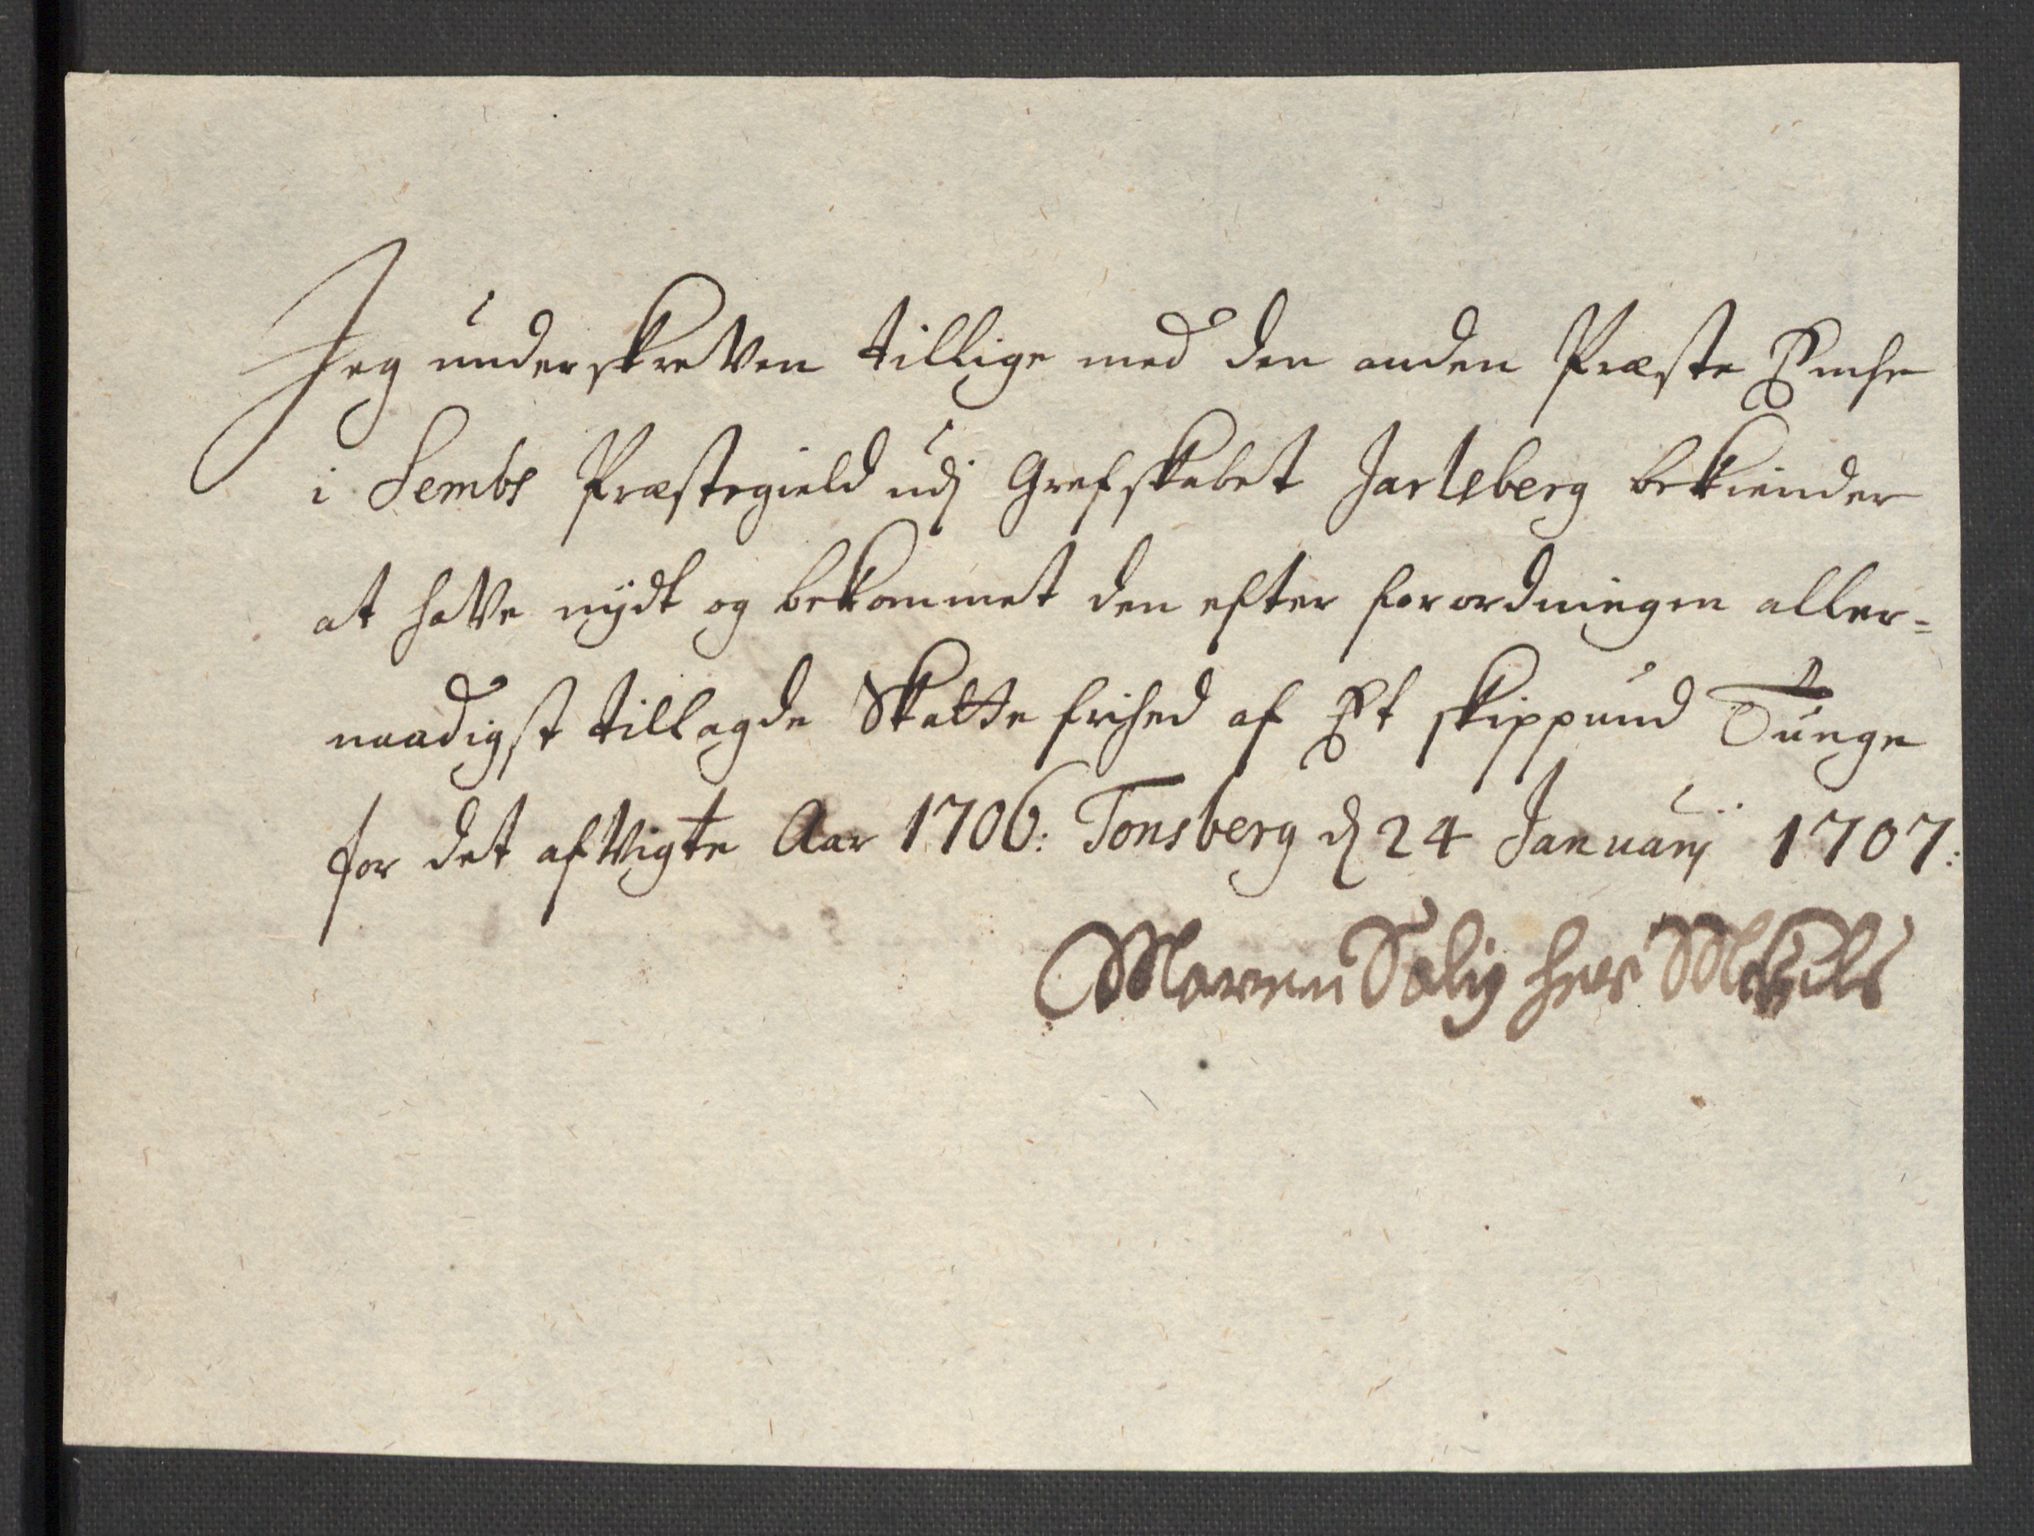 Jeg underskreven tillige med den anden Præste Encke
i Sembs Præstegield udj Grefskabet Jarlsberg bekiender
at have nydt og bekommet den efter forordningen aller=
naadigst tillagde Skatte frihed af Et skippund Tunge
for det afvigte Aar 1706: Tonsberg d 24 Januarij 1707:
Maren Salig her